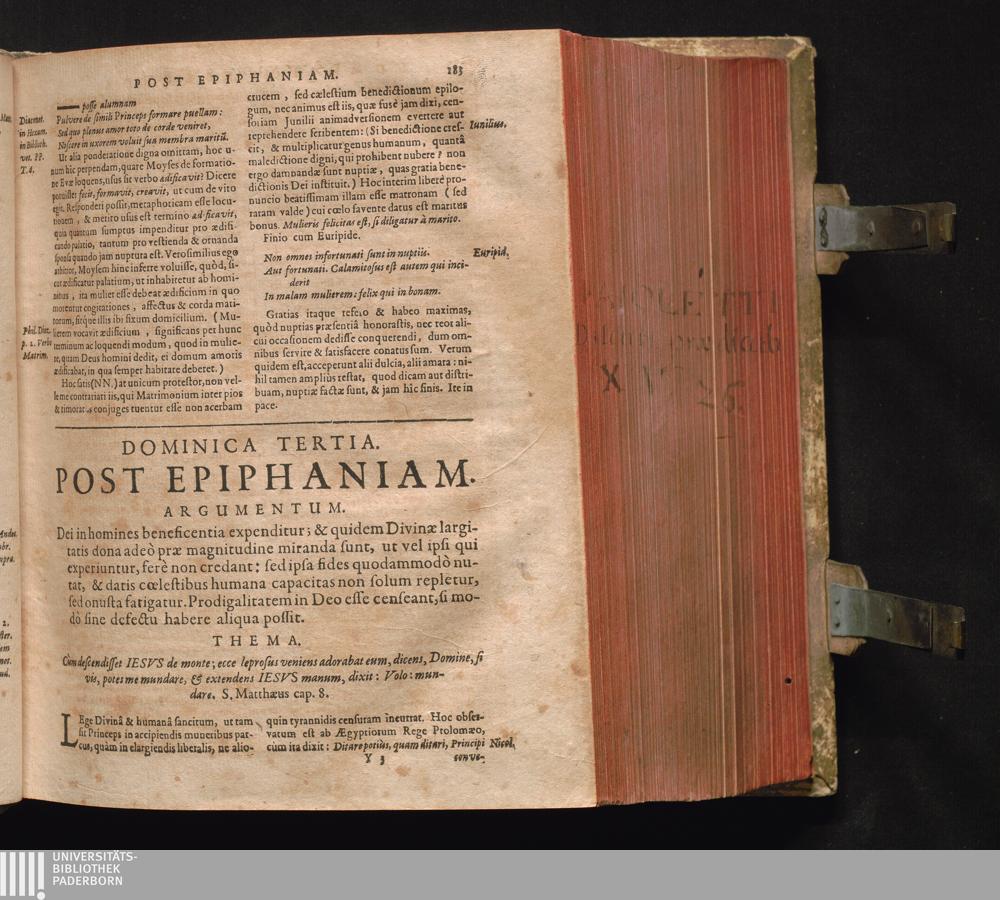 POST EPIPHANIAM.
183
posse alumnam
Pulvere de simili Princeps formare puellam:
Sed quo plenus amor toto de corde veniret,
Noscere in uxorem voluit sua membra maritũ.
Ut alia ponderatione digna omittam, hoc u-
num hic perpendam, quare Moyses de formatio-
ne Evæ loquens, usus sit verbo ædificavit? Dicere
potuisset fecit, formavit, creavit, ut cum de viro
egit. Responderi possit, metaphoricam esse locu-
tionem, & merito usus est termino ædificavit,
quia quantum sumptus impenditur pro ædifi-
cando palatio, tantum pro vestienda & ornanda
sponsa quando jam nuptura est. Verosimilius ego
arbitror, Moysem hinc inferre voluisse, quòd, si-
cut ædificatur palatium, ut inhabitetur ab homi-
nibus, ita mulier esse debeat ædificium in quo
morentur cogitationes, affectus & corda mari-
torum, sitque illis ibi fixum domicilium. (Mu-
lierem vocavit ædificium, significans per hunc
terminum ac loquendi modum, quod in mulie-
re, quam Deus homini dedit, ei domum amotis
ædificabat, in qua semper habitare deberet.)
Hoc satis (NN.) at unicum protestor, non vel-
le me contrariari iis, qui Matrimonium inter pios
& timoratos conjuges tuentur esse non acerbam
Diacenus.
in Hexam.
in Biblioth.
vet. PP.
T. 4.
Phil. Diez.
p. 2. Verbo
Matrim.
crucem, sed cælestium benedictionum epilo-
gum, nec animus est iis, quæ fusè jam dixi, cen-
soriam Junilii animadversionem evertere aut
reprehendere scribentem: (Si benedictione cres-
cit, & multiplicatur genus humanum, quantâ
maledictione digni, qui prohibent nubere? non
ergo damnandæ sunt nuptiæ, quas gratia bene-
dictionis Dei instituit.) Hoc interim liberè pro-
nuncio beatissimam illam esse matronam (sed
raram valde) cui cœlo favente datus est maritus
bonus. Mulieris felicitas est, si diligatur à marito.
Finio cum Euripide.
Non omnes infortunati sunt in nuptiis.
Aut fortunati. Calamitosus est autem qui inci-
derit
In malam mulierem: felix qui in bonam.
Gratias itaque refero & habeo maximas,
quòd nuptias præsentiâ honorastis, nec reor ali-
cui occasionem dedisse conquerendi, dum om-
nibus servire & satisfacere conatus sum. Verum
quidem est, acceperunt alii dulcia, alii amara: ni-
hil tamen ampliùs restat, quod dicam aut distri-
buam, nuptiæ factæ sunt, & jam hic finis. Ite in
pace.
Iunilius.
Euripid.
DOMINICA TERTIA.
POST EPIPHANIAM.
ARGUMENTUM.
Dei in homines beneficentia expenditur; & quidem Divinæ largi-
tatis dona adeò præ magnitudine miranda sunt, ut vel ipsi qui
experiuntur, ferè non credant: sed ipsa fides quodammodò nu-
tat, & datis cœlestibus humana capacitas non solum repletur,
sed onusta fatigatur. Prodigalitatem in Deo esse censeant, si mo-
dò sine defectu habere aliqua possit.
THEMA.
Cùm descendisset IESVS de monte; ecce leprosus veniens adorabat eum, dicens, Domine, si
vis, potes me mundare, & extendens IESVS manum, dixit: Volo: mun-
dare. S. Matthæus cap. 8.
LEge Divinâ & humanâ sancitum, ut tam
sit Princeps in accipiendis muneribus par-
cus, quàm in elargiendis liberalis, ne alio-
quin tyrannidis censuram incurrat. Hoc obser-
vatum est ab Ægyptiorum Rege Ptolomæo,
cùm ita dixit: Ditare potiùs, quam ditari, Principi
Nicol.
Y 3
conve-
X V 26.
UNIVERSITÄTS-
BIBLIOTHEK
PADERBORN